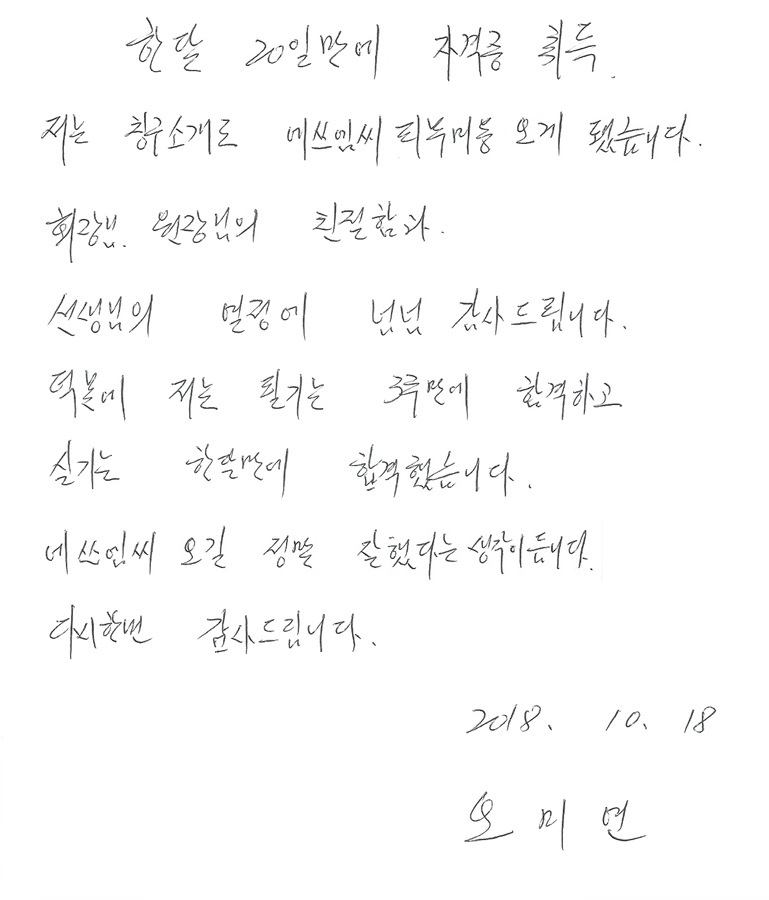 한달 20일만에 자격증 취득.
저는 친구소개로 에쓰엠씨 피부미용 오게 됐습니다.
회장님. 원장님의 친절함과.
선생님의 열정에 넘넘 감사드립니다.
덕분에 저는 필기는 3주만에 합격하고
실기는 한달만에 합격했습니다.
에쓰엠씨 오길 정말 잘했다는 생각이듭니다.
다시한번 감사드립니다.
2018. 10. 18
오미연